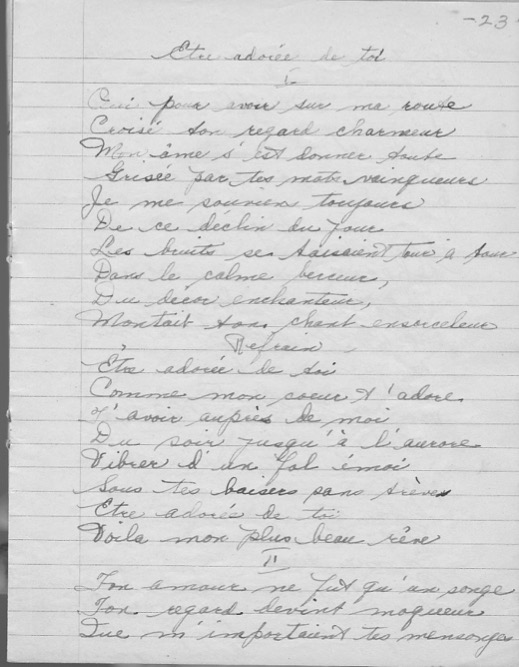 -23-
Etre adorée de toi
I
Oui pour avoir sur ma route
Croisé ton regard charmeur
Mon âme s'est donner toute
Grisée par tes mots vainqueurs
Je me souviens toujours
De ce déclin du jour
Les bruits se taisaient tour à tour
Dans le calme berceur,
Du decor enchanteur,
Montait ton chant ensorceleur
Refrain
Être adorée de toi
Comme mon coeur t'adore
T'avoir auprès de moi
Du soir jusqu'à l'aurore
Vibrer d'un fol émoi
Sous tes baisers sans trèves
Etre adorée de toi
Voila mon plus beau rêve
II
Ton amour ne fut qu'un songe
Ton regard devint moqueur
Que m'importaient tes mensonges